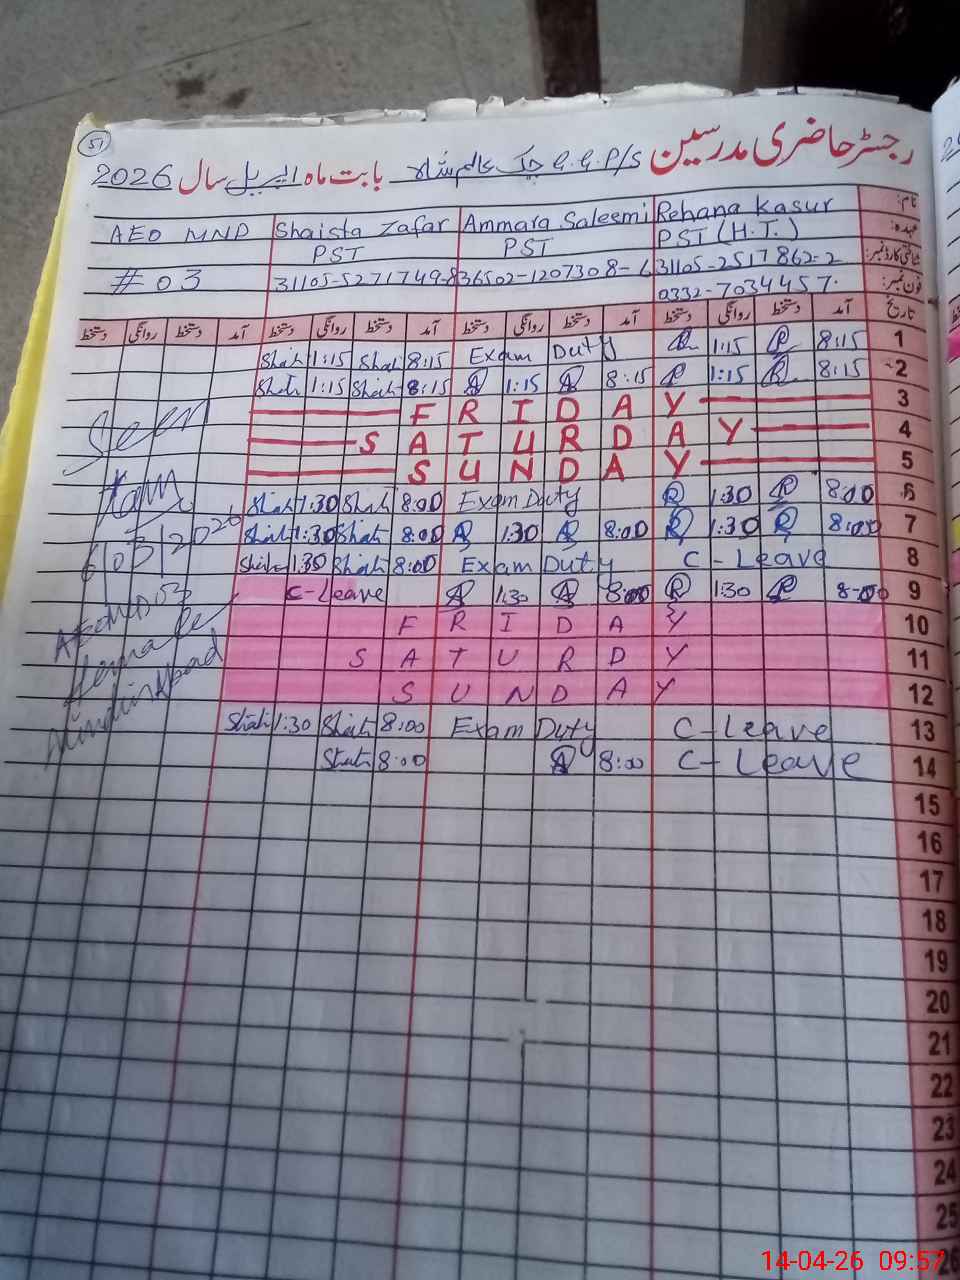 51
رجسٹر حاضری مدرسین G.G.P/S چک عالم شاہ بابت ماہ اپریل سال 2026
نام: Rehana Kasur Ammara Saleemi Shaista Zafar AEO MND
عہدہ: PST (H.T.) PST PST
شناختی کارڈ نمبر: 31105-2517862-2 36502-1207308-6 31105-5271749-8 # 03
فون نمبر: 0332-7034457.
تاریخ آمد دستخط روانگی دستخط آمد دستخط روانگی دستخط آمد دستخط روانگی دستخط آمد دستخط روانگی دستخط
Shah 1:15 Shah 8:15 Exam Duty R 1:15 R 8:15 1
Shah 1:15 Shah 8:15 A 1:15 A 8:15 R 1:15 R 8:15 2
FRIDAY 3
SATURDAY 4
SUNDAY 5
Shah 1:30 Shah 8:00 Exam Duty R 1:30 R 8:00 6
Shah 1:30 Shah 8:00 A 1:30 A 8:00 R 1:30 R 8:00 7
Shah 1:30 Shah 8:00 Exam Duty C-Leave 8
C-Leave A 1:30 A 8:00 R 1:30 R 8:00 9
FRIDAY 10
SATURDY 11
SUNDAY 12
Shah 1:30 Shah 8:00 Exam Duty C-Leave 13
Shah 8:00 A 8:00 C-Leave 14
15
16
17
18
19
20
21
22
23
24
25
26
Seen
AEO MND 03
14-04-26 09:57